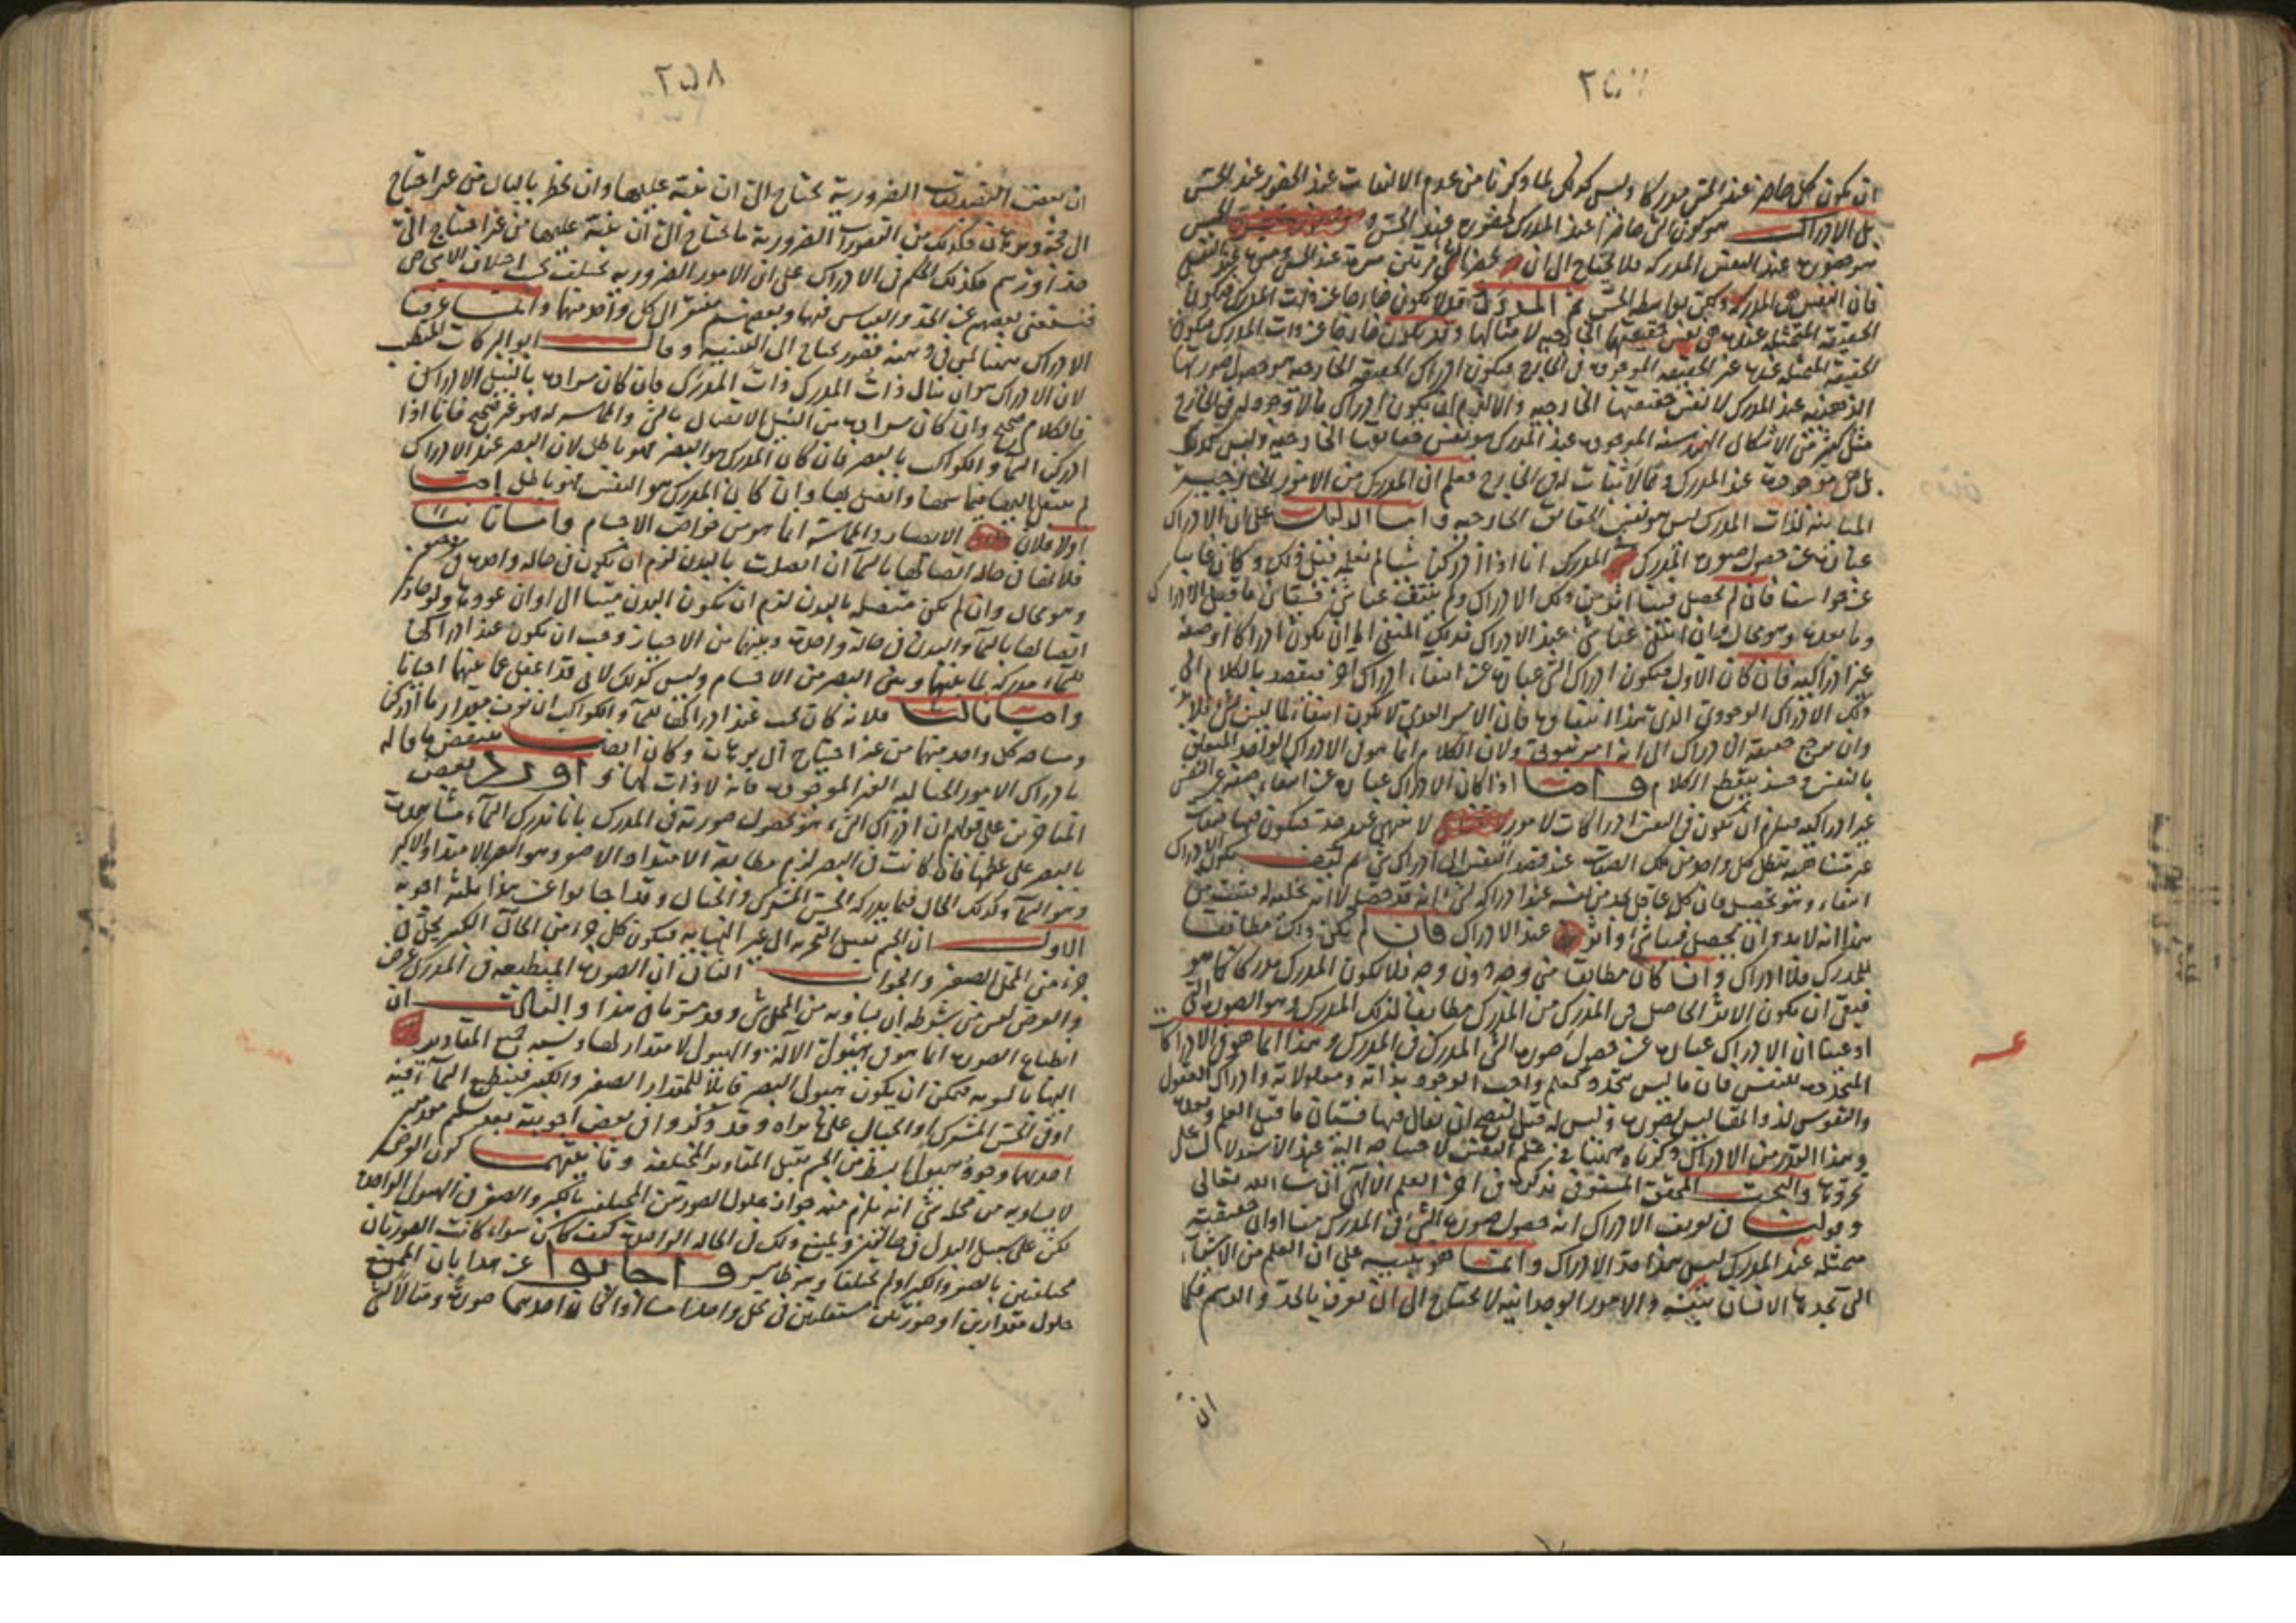 ان يكون كل حاضر عند الحس مدركا وليس كذلك لما ذكرنا من عدم الالتفات عند الحضور عند الحس
بل الادراك هو كون الشي حاضرا عند المدرك لحضوره عند الحس
هو حضوره عند النفس المدركة فلا يحتاج الى ان يحضر الشي مرتين مرة عند الحس ومرة عند النفس
فان النفس هي المدركة ولكن بواسطة الحس ثم المدرك قد لا يكون خارجا عن ذات المدرك فيكون
الحقيقة المتمثلة عنده هي نفس حقيقتها الخارجية لا مثالها وقد يكون خارجا عن ذات المدرك فيكون
الحقيقة المتمثلة عنده غير الحقيقة الموجودة في الخارج فيكون ادراك الحقيقة الخارجية هو حصول صورتها
الذهنية عند المدرك لا نفس حقيقتها الخارجية والا لزم ان يكون ادراك ما لا وجود له في الخارج
مثل كثير من الاشكال الهندسية الموجودة عند المدرك هو نفس حقائقها الخارجية وليس كذلك
بل هي موجودة عند المدرك ولا ثبات لها في الخارج فعلم ان المدرك من الامور الخارجية
المباينة لذات المدرك ليس هو نفس الحقائق الخارجية واما الدليل على ان الادراك
عبارة عن حصول صورة المدرك في المدرك انا اذا ادركنا شيا لم نعلمه قبل ذلك وكان غائبا
عن حواسنا فان لم يحصل فينا اثر من ذلك الادراك ولم ينتف عنا شي فيستان ما قبل الادراك
وما بعده وهو محال وان انتفى عنا شي عند الادراك فذلك المنتفي اما ان يكون ادراكا او صفة
غير ادراكية فان كان الاول فيكون ادراك الشي عبارة عن انتفاء ادراك اخر فنقصد بالكلام الى
ذلك الادراك الوجودي الذي هذا انتفاؤه فان الامر العدمي لا يكون انتفاء لما ليس بشي فلا بد
وان يرجع حقيقة الادراك الى انه امر ثبوتي ولان الكلام انما هو في الادراك الواحد المتعلق
بالنفس وحينئذ ينقطع الكلام واما اذا كان الادراك عبارة عن انتفاء صفة عن النفس
غير ادراكية فيلزم ان تكون في النفس ادراكات لامور لا تنتهي عند حد فيكون فيها صفات
غير متناهية تبطل كل واحد من تلك الصفات عند قصد النفس الى ادراك شي ثم كيف يكون الادراك
انتفاء وهو تحصل فان كل عاقل يجد من نفسه عند ادراكه لشي انه قد حصل لا انه تخلى له فثبت من
هذا انه لا بد وان يحصل فينا شي او اثر عند الادراك فان لم يكن ذلك مطابقا
للمدرك فلا ادراك وان كان مطابقا من وجه دون وجه فلا يكون المدرك مدركا كما هو
فبقي ان يكون الاثر الحاصل في المدرك من المدرك مطابقا لذلك المدرك وهو الصورة التي
ادعينا ان الادراك عبارة عن حصول صورة الشي المدرك في المدرك وهذا انما هو في الادراكات
المتجددة للنفس فان ما ليس بمتجدد كعلم واجب الوجود بذاته ومعلولاته وادراك العقول
والنفوس لذواتها ليس بصورة وليس له قبل ليصح ان يقال فيها فيستان ما قبل العلم وبعده
وهذا القدر من الادراك ذكرناه ههنا في علم النفس لاحتياجه اليه عند الاستدلال على
تجردها والبحث المحقق المستوفى نذكره في اخر العلم الالهي ان شا الله تعالى
وقولنا في تعريف الادراك انه حصول صورة الشي في المدرك منا او ان حقيقته
متمثلة عند المدرك ليس هذا حد الادراك وانما هو تنبيه على ان العلم من الاشياء
التي يجدها الانسان بنفسه والامور الوجدانية لا يحتاج الى ان تعرف بالحد والرسم فكما
ان
٢٥٨
ان بعض التصديقات الضرورية تحتاج الى ان ننبه عليها وان تخطر بالبال من غير احتياج
الى حجة وبرهان فكذلك من التصورات الضرورية ما تحتاج الى ان ننبه عليها من غير احتياج الى
حد او رسم فكذلك الحكم في الادراك على ان الامور الضرورية تختلف بحسب اختلاف الاشخاص
فيستغني بعضهم عن الحد والقياس فيها وبعضهم يفتقر الى كل واحد منهما وانما عرفنا
الادراك ههنا لمن في ذهنه قصور يحتاج الى التنبيه وقال ابو البركات المتطبب
لان الادراك هو ان ينال ذات المدرك ذات المدرك فان كان مراده بالنيل الادراك
فالكلام صحيح وان كان مراده من النيل الاتصال بالشي والمماسة له فهو غير صحيح فانا اذا
ادركنا السما والكواكب بالبصر فان كان المدرك هو البصر فهو باطل لان البصر عند الادراك
لم ينتقل اليها فيماسها واتصل بها وان كان المدرك هو النفس فهو باطل اما
اولا فلان الاتصال والمماسة انما هو من خواص الاجسام واما ثانيا
فلانها في حالة اتصالها بالسما ان اتصلت بالبدن لزم ان تكون في حالة واحدة في جسمين
وهو محال وان لم تكن متصلة بالبدن لزم ان يكون البدن ميتا الى اوان عودها ولو جاز
اتصالها بالسما والبدن في حالة واحدة وبينهما من الاحياز وجب ان تكون عند ادراكها
للسماء مدركة لما بينها وبين البصر من الاجسام وليس كذلك لانا قد نغفل عما بينهما احيانا
واما ثالثا فلانه كان يجب عند ادراكنا للسما والكواكب ان نعرف مقدار ما ادركنا
ومساحة كل واحد منهما من غير احتياج الى برهان وكان ايضا ينتقض ما قاله
بادراك الامور الخيالية الغير الموجودة فانه لا ذات لها واورد بعض
المتاخرين على قولهم ان ادراك الشي هو حصول صورته في المدرك بانا ندرك السماء مشاهدة
بالبصر على عظمها فان كانت في البصر لزم مطابقة الامتداد الاصغر وهو البصر بالامتداد الاكبر
وهو السماء وكذلك الحال فيما يدركه الحس المشترك والخيال وقد اجابوا عن هذا بثلثة اجوبة
الاول ان الجسم يقبل التجزية الى غير النهاية فيكون كل جزء من الحال الكبير يحل في
جزء من المحل الصغير والجواب الثاني ان الصورة المنطبعة في المدرك عرض
والعرض ليس من شرطه ان يساويه من المحل شي وقد مر ما في هذا والثالث ان
انطباع الصورة انما هو في هيولى الالة والهيولى لا مقدار لها ونسبة جميع المقادير
اليها بالسوية فيمكن ان يكون هيولى البصر قابلا للمقدار الصغير والكبير فينطبع السماء فيه
او في الحس المشترك او الخيال على ما نراه وقد ذكروا في بعض اجوبته بعد تسليم مقدمتين
احديهما وجود هيولى ابسط من الجسم تقبل المقادير المختلفة وثانيتهما كون العرض
لا يساويه من محله شي انه يلزم منه جواز حلول الصورتين المختلفتين بالكبر والصغر في الهيولى الواحدة
لكن على سبيل البدل في حالتين ويمتنع ذلك في الحالة الواحدة كيف كان سواء كانت الصورتان
مختلفتين بالصغر والكبر او لم يختلفا وهو ظاهر واجابوا عن هذا بان الممتنع
حلول مقدارين او صورتين مستقلتين في محل واحد اما اذا كان احدهما صورة ومثالا لشي